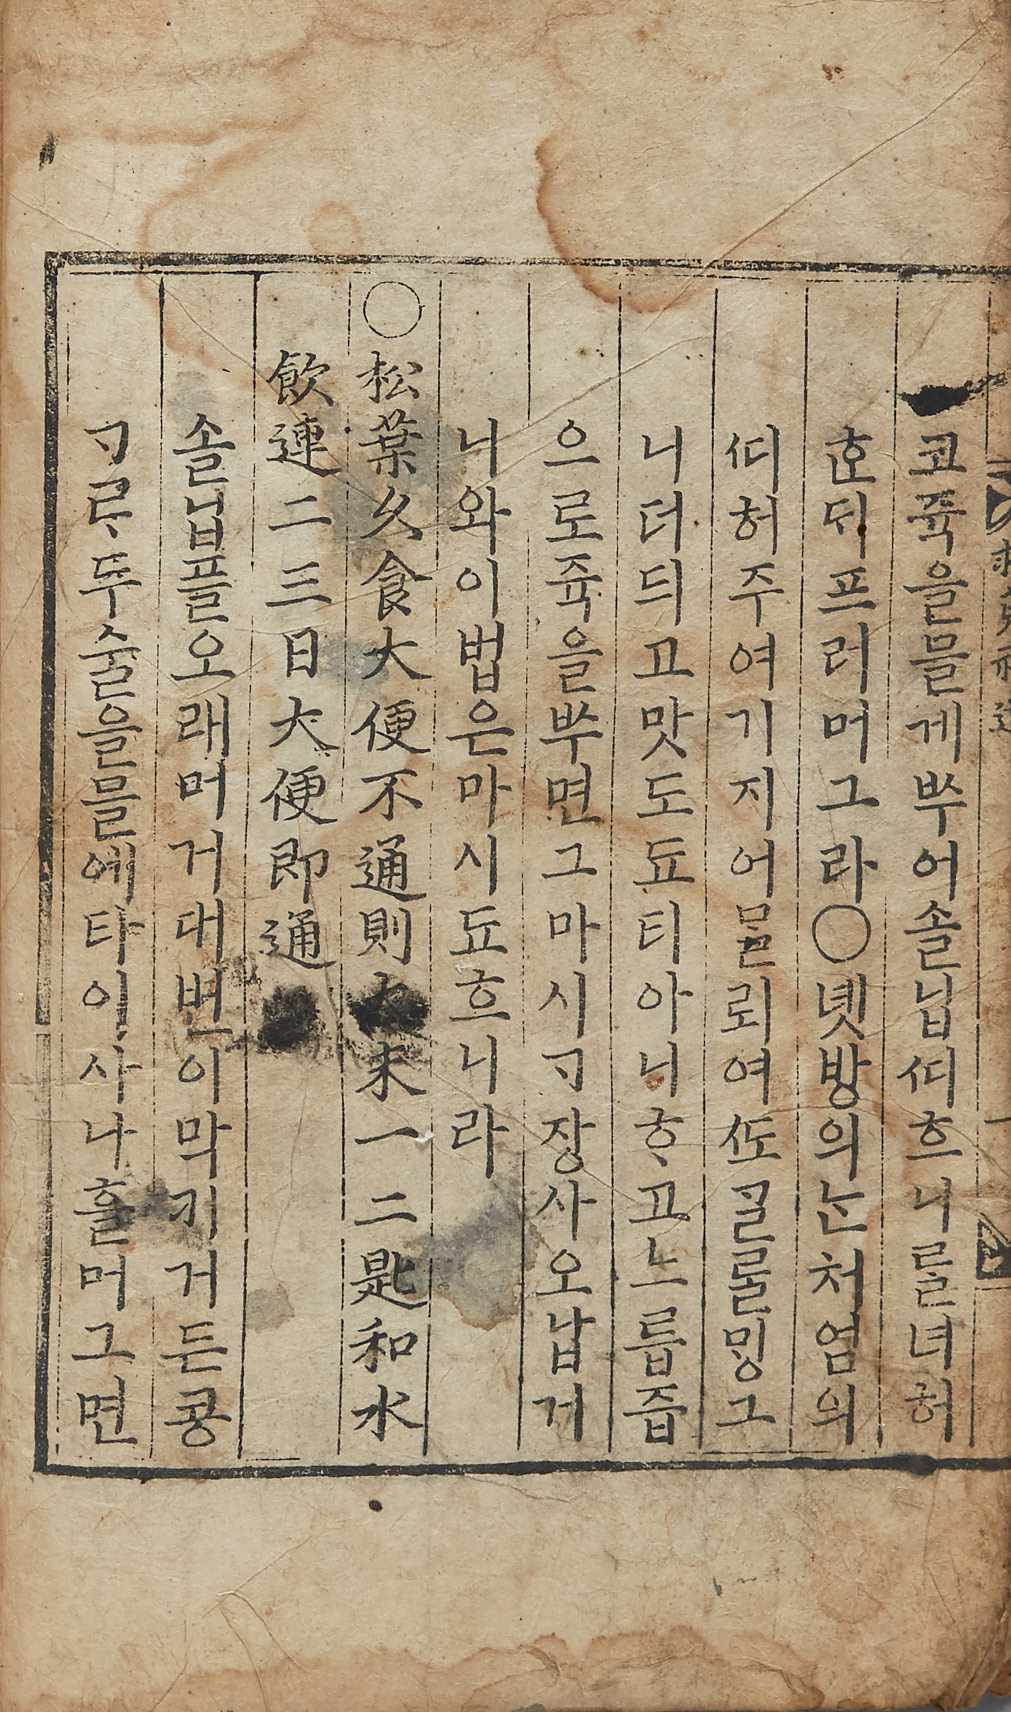 코쥭을믈게ᄡᅮ어솔닙ᄯᅵ흐니ᄅᆞᆯ녀허
ᄒᆞᆫᄃᆡ프러머그라○녯방의ᄂᆞᆫ처엄의
ᄯᅵ허주여기지어ᄆᆞᆯ뢰여ᄯᅩᄀᆞᆯᄅᆞᆯᄆᆡᆼ그
니더듸고맛도됴티아니ᄒᆞ고느릅즙
으로쥭을ᄡᅮ면그마시ᄀᆞ장사오납게
니와이법은마시됴흐니라
○松葉久食大便不通則末一二匙和水
飮連二三日大便即通
솔닙플오래머거대변이막키거든콩
ᄀᆞᄅᆞ두술을믈에타이사나흘머그면